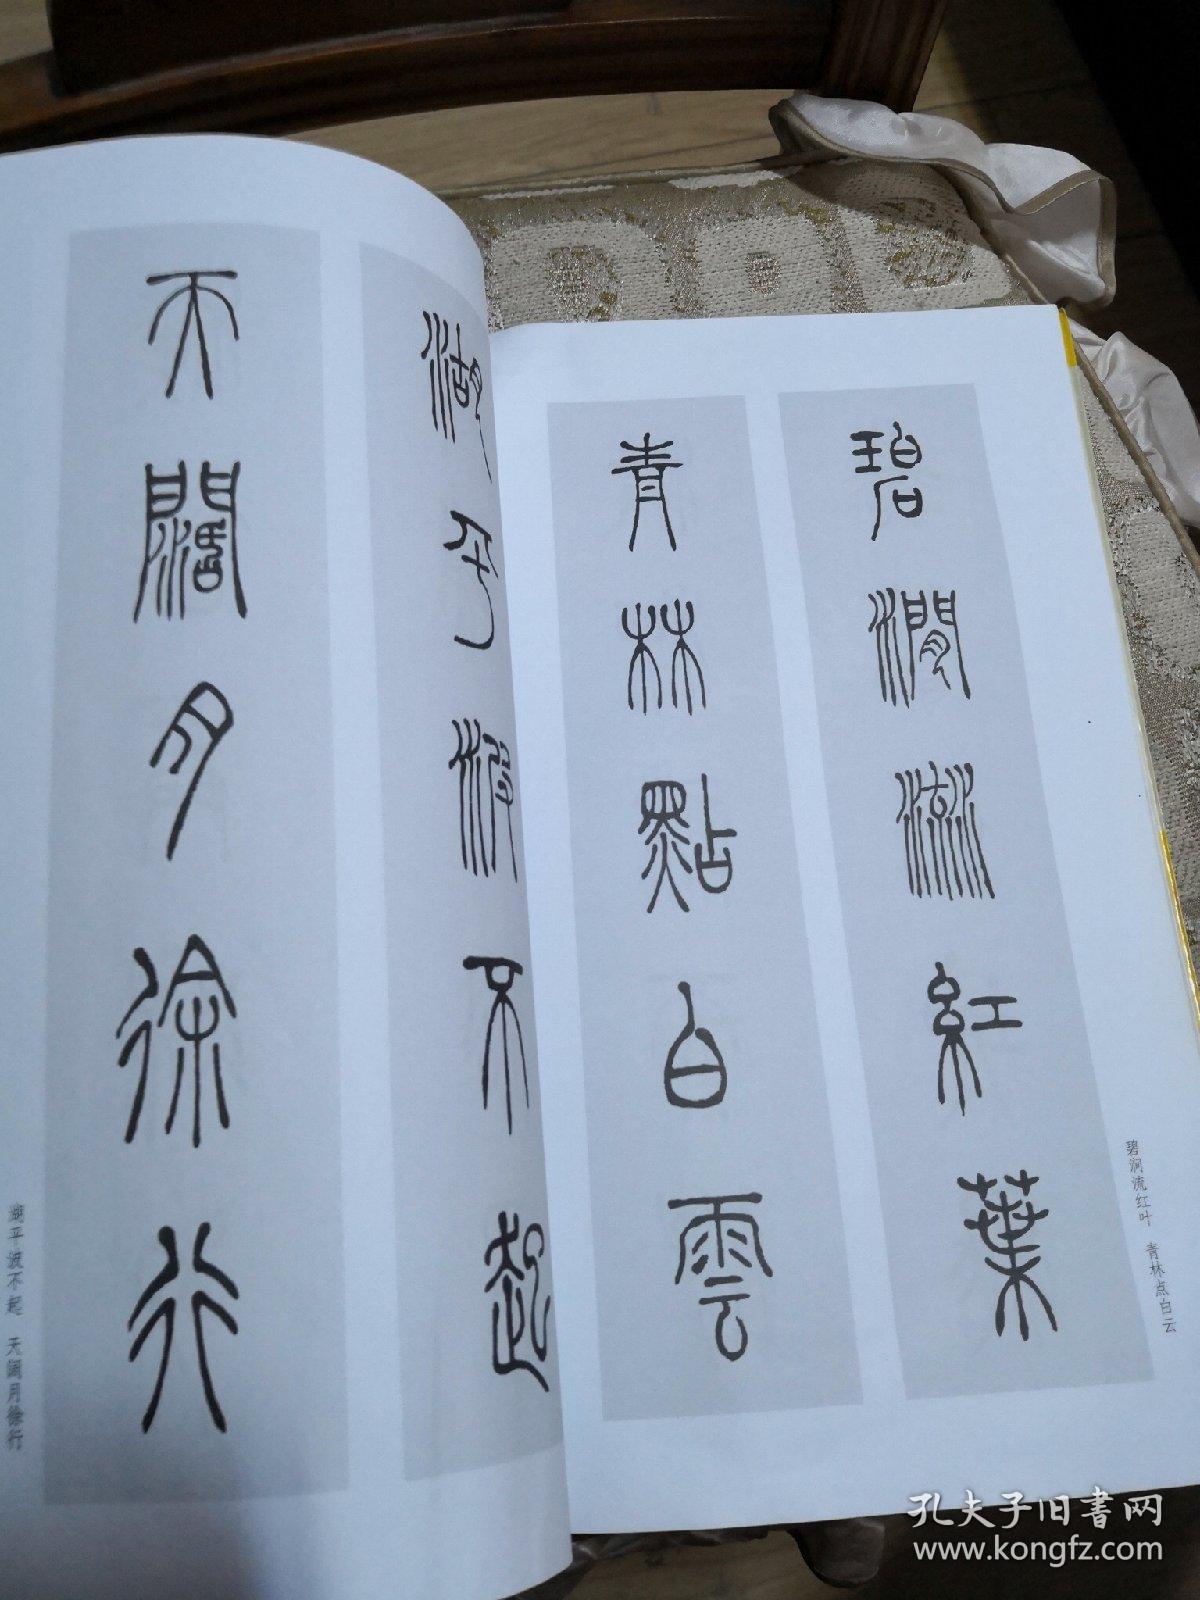 碧澗流紅葉
青林點白雲
碧涧流红叶 青林点白云
湖平波不起
天闊月徐行
湖平波不起 天阔月徐行
孔夫子旧書网
www.kongfz.com